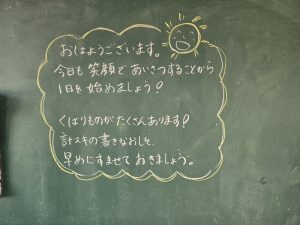 おはようございます。
今日も笑顔であいさつすることから
1日を始めましょう!
くばりものがたくさんあります!
計スキの書きなおしを、
早めにすませておきましょう。